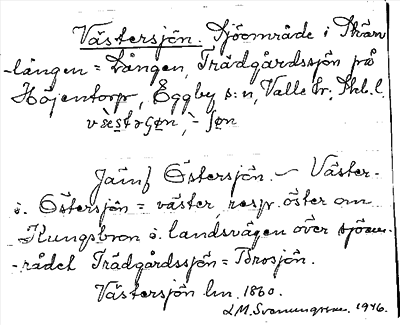 Västersjön. Sjöområde i Skär-
-lången = Lången, Trädgårdssjön på
Höjentorp, Eggby s:n, Valle hr, Skb.l.
Jämf Östersjön. ~ Väster-
o. Östersjön = väster, resp. öster om
Kungsbron o. landsvägen över sjöom-
-rådet Trädgårdssjön = Brosjön.
Västersjön lm. 1860.
L.M. Svenungsson. 1946.